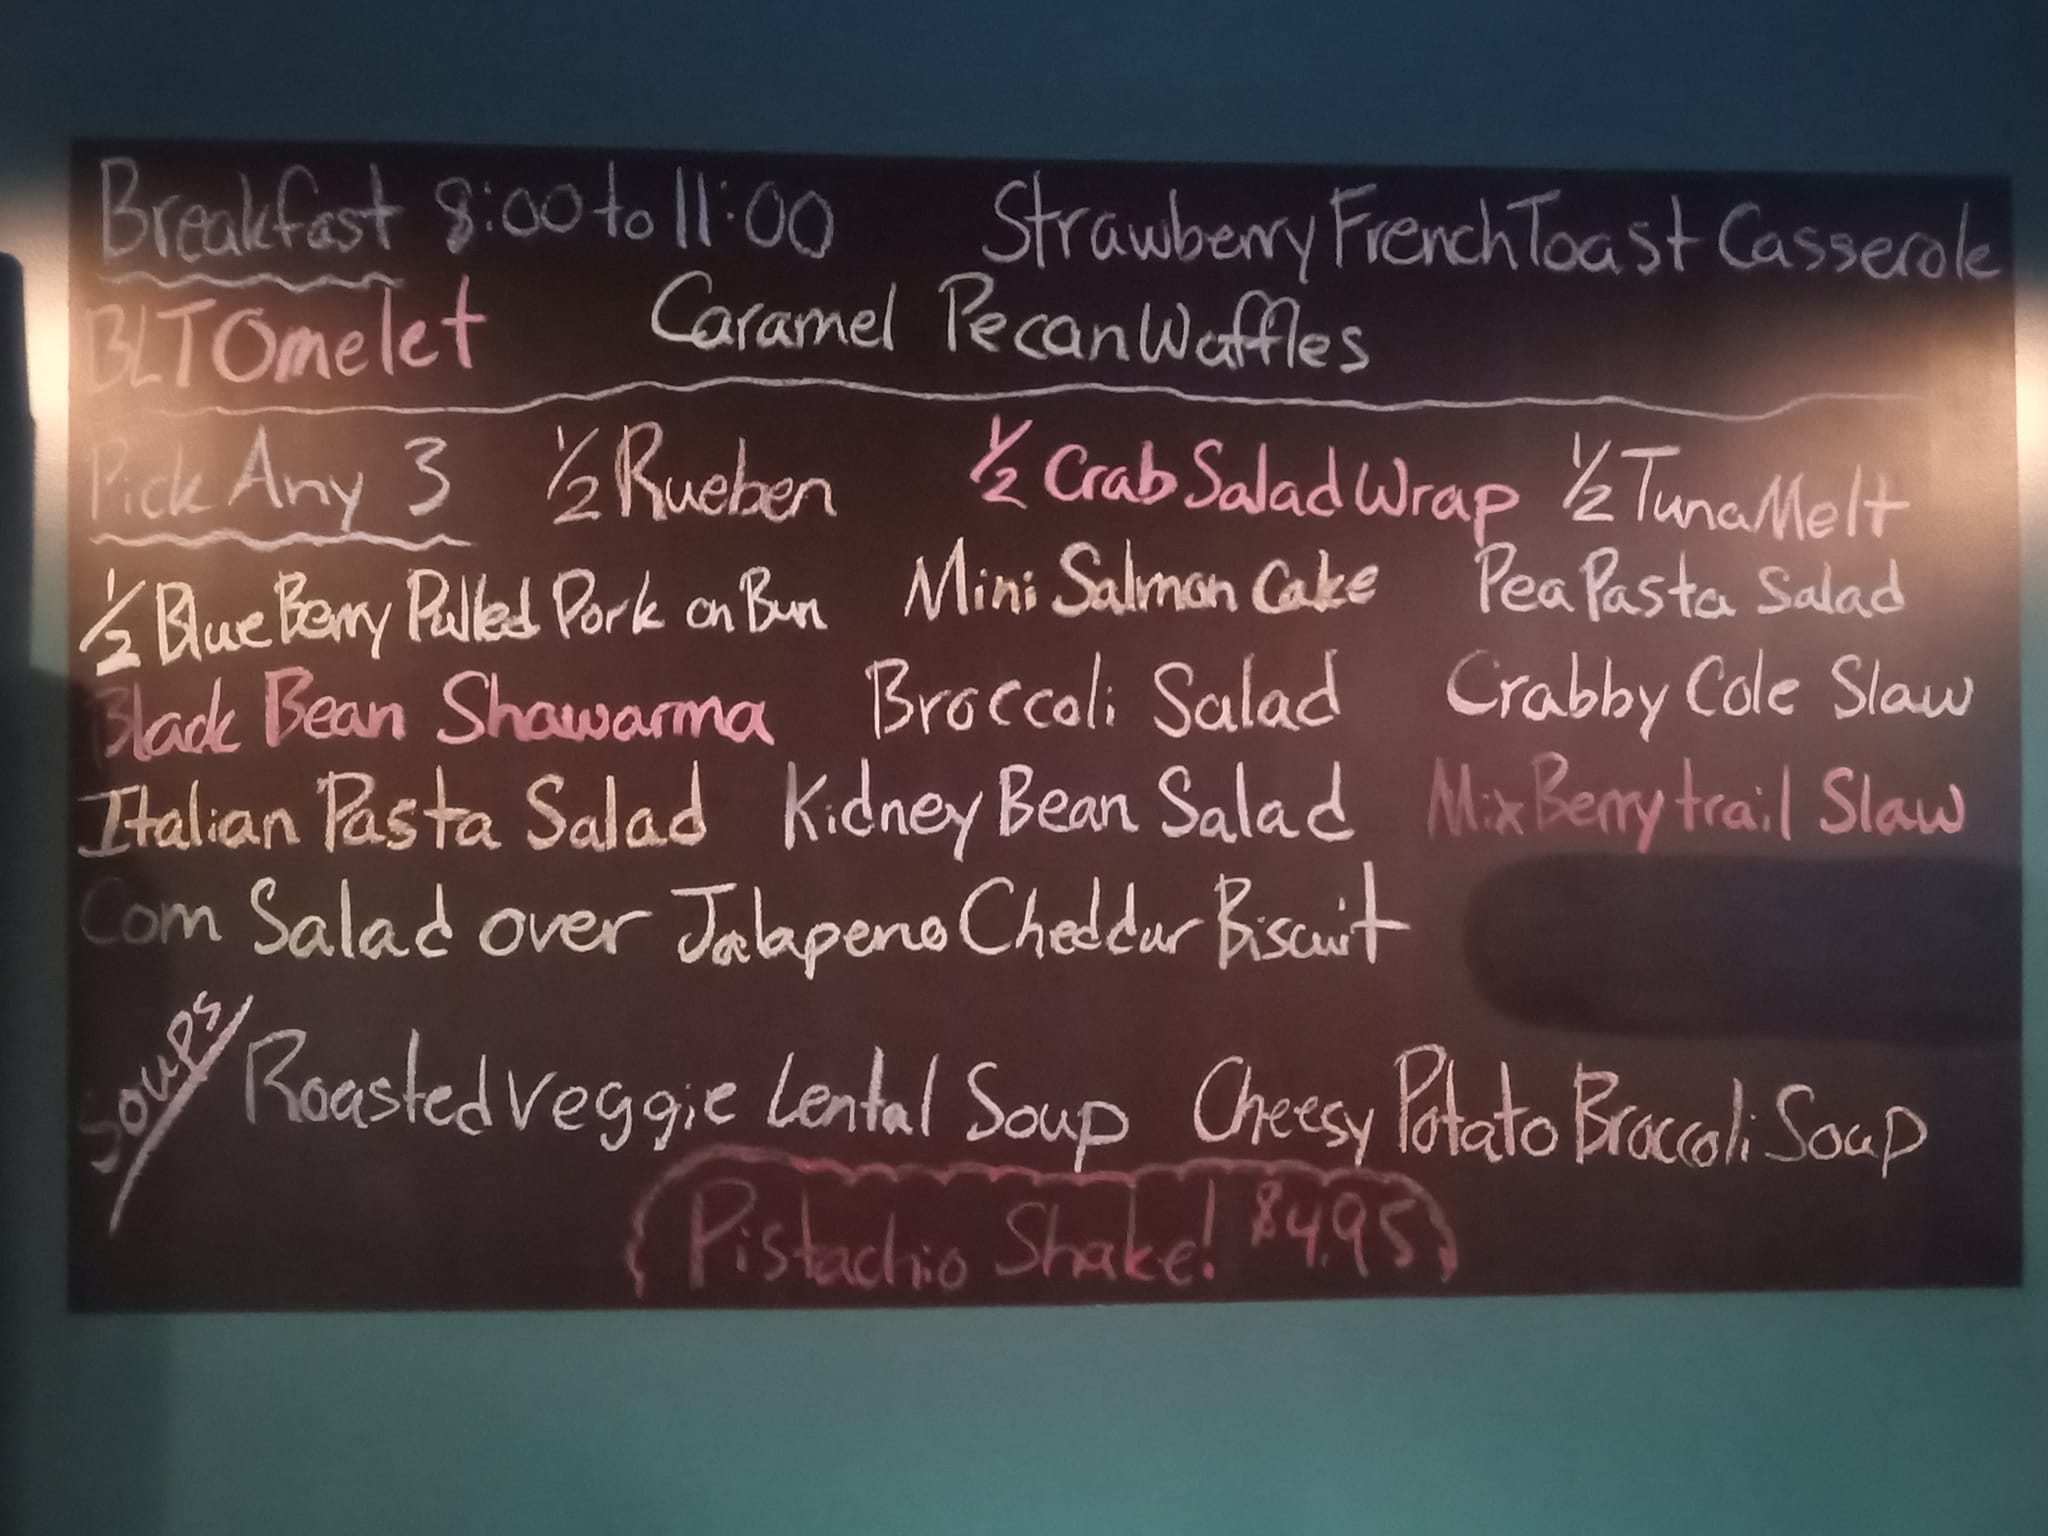 Breakfast 8:00 to 11:00 Strawberry French Toast Casserole
BLT Omelet Caramel Pecan Waffles
Pick Any 3 1/2 Rueben 1/2 Crab Salad Wrap 1/2 Tuna Melt
1/2 Blue Berry Pulled Pork on Bun Mini Salmon Cake Pea Pasta Salad
Black Bean Shawarma Broccoli Salad Crabby Cole Slaw
Italian Pasta Salad Kidney Bean Salad Mix Berry trail Slaw
Corn Salad over Jalapeno Cheddar Biscuit
Soups Roasted Veggie Lental Soup Cheesy Potato Broccoli Soup
Pistachio Shake! $4.95